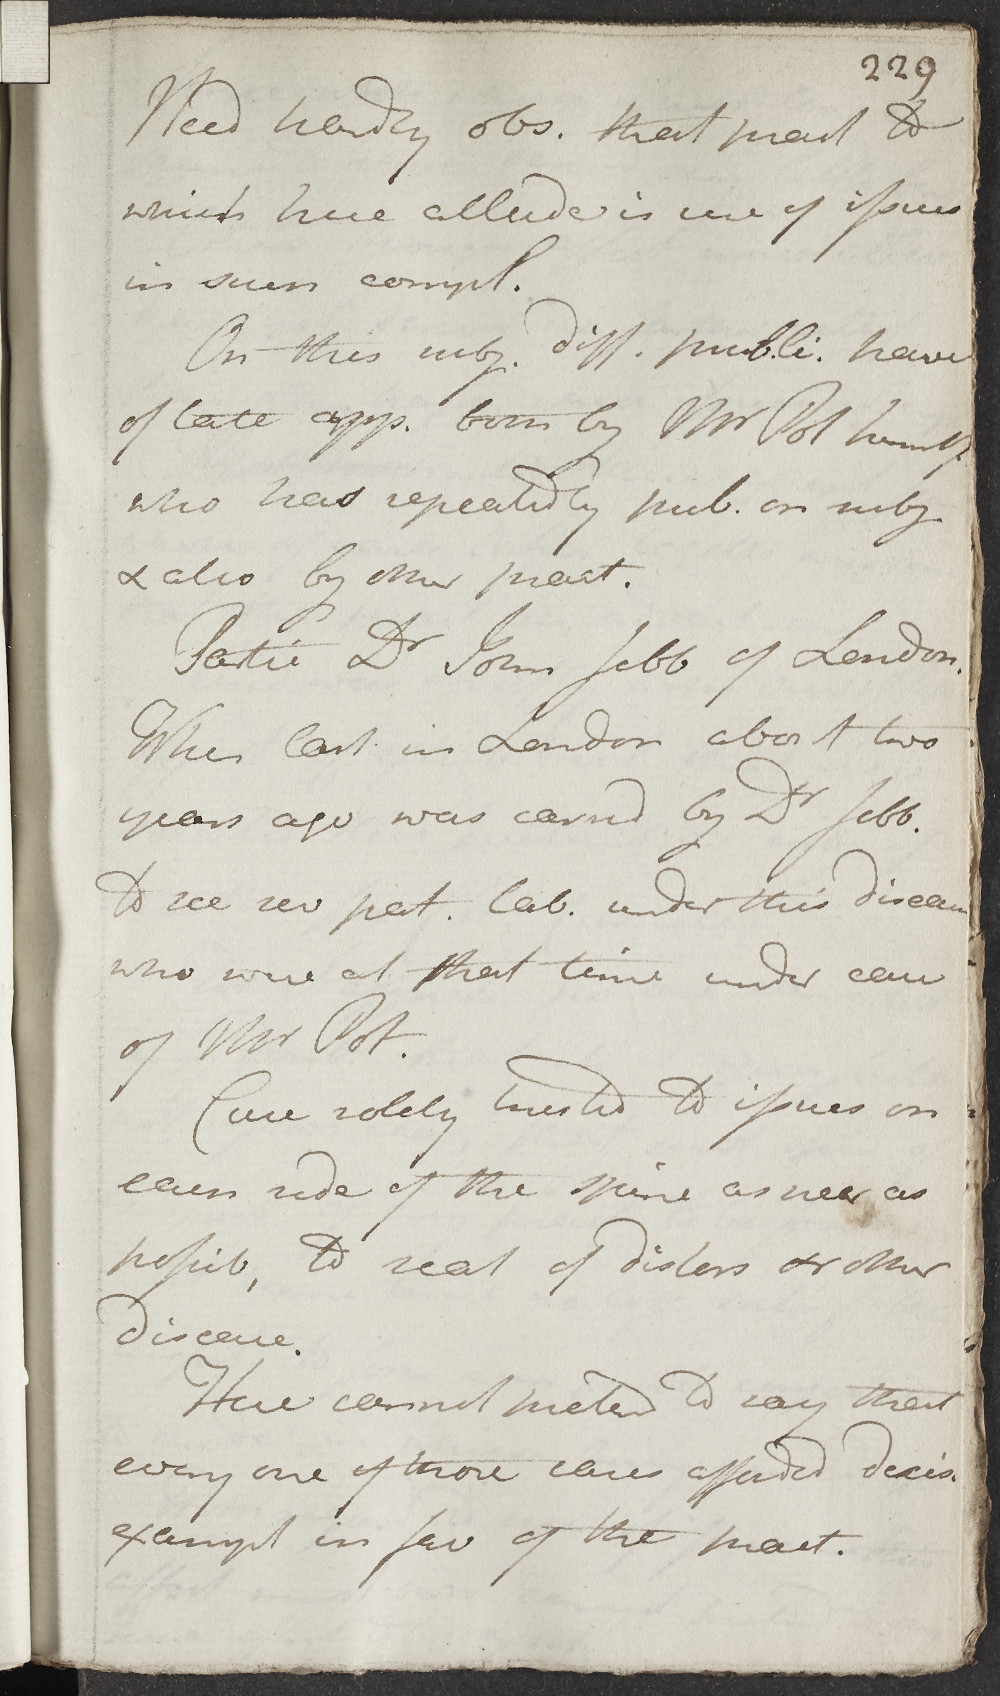 229
Need hardly obs. that pract to
which here allude is use of issues
in such compl.
On this subj. diff. publi. have
of late app. both by Mr Pot himself
who has repeatedly pub. on subj
& also by other pract.
Partic Dr John Jebb of London.
When last in London about two
years ago was carried by Dr Jebb.
to see sev pat. lab. under this disease
who were at that time under care
of Mr Pot.
Cure solely trusted to issues on
each side of the spine as near as
possib, to seat of distors or other
disease.
Here cannot pretend to say that
every one of those cases afforded decis.
exampl in fav of the pract.